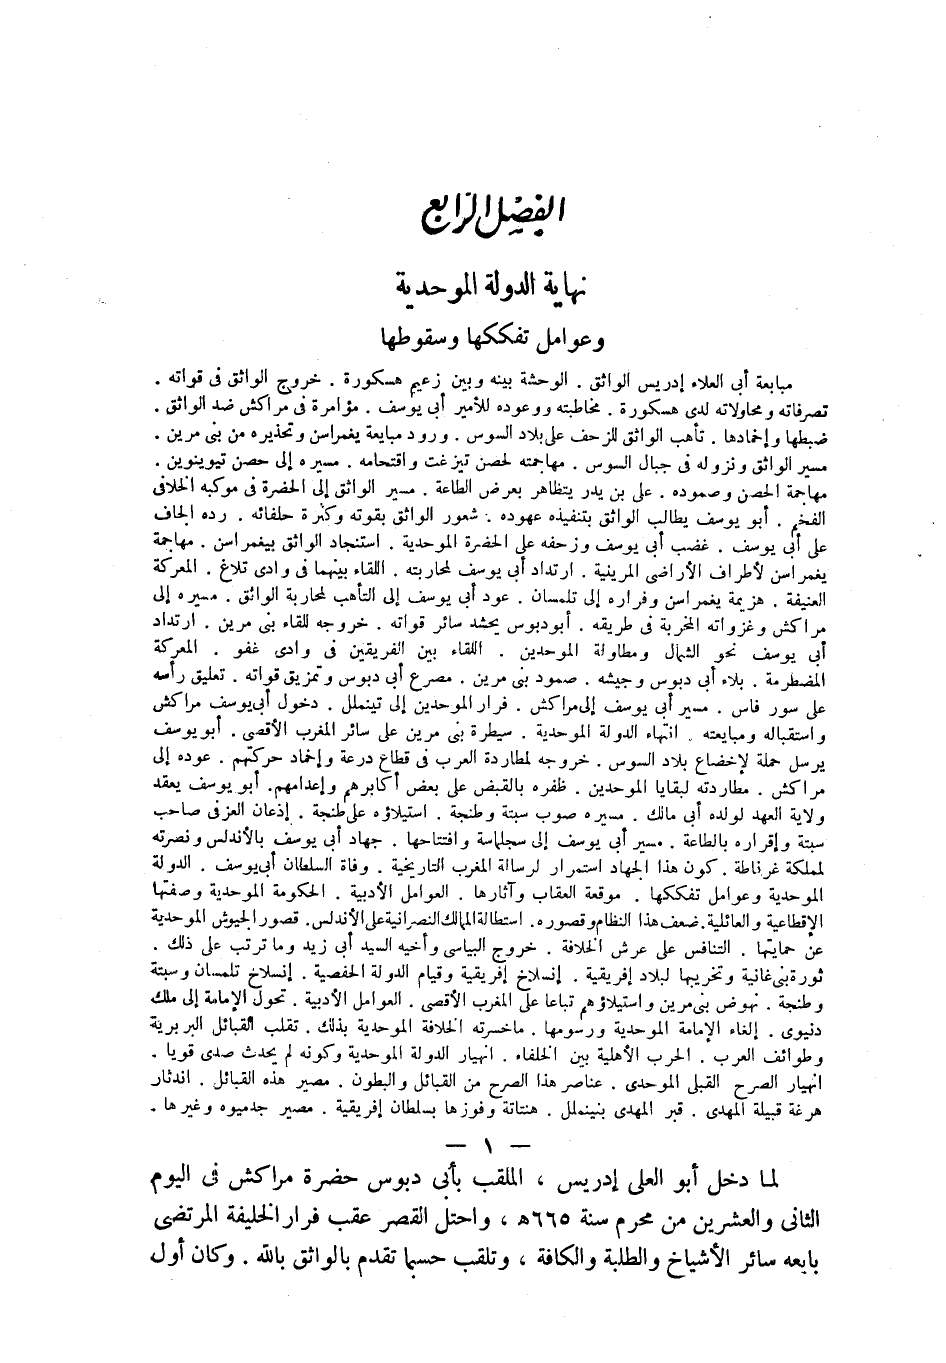 الفصل الرابع
نهاية الدولة الموحدية
وعوامل تفككها وسقوطها
مبايعة أبى العلاء إدريس الواثق . الوحشة بينه وبين زعيم هسكورة . خروج الواثق فى قواته .
تصرفاته ومحاولاته لدى هسكورة . مخاطبته ووعوده للأمير أبى يوسف . مؤامرة فى مراكش ضد الواثق .
ضبطها وإخمادها . تأهب الواثق للزحف على بلاد السوس . ورود مبايعة يغمراسن وتحذيره من بنى مرين .
مسير الواثق ونزوله فى جبال السوس . مهاجمته لحصن تيزغت واقتحامه . مسيره إلى حصن تيوينوين .
مهاجمة الحصن وصموده . على بن يدر يتظاهر بعرض الطاعة . مسير الواثق إلى الحضرة فى موكبه الخلافى
الفخم . أبو يوسف يطالب الواثق بتنفيذه عهوده . شعور الواثق بقوته وكثرة حلفائه . رده الجاف
على أبى يوسف . غضب أبى يوسف وزحفه على الحضرة الموحدية . استنجاد الواثق بيغمراسن . مهاجمة
يغمراسن لأطراف الأراضى المرينية . ارتداد أبى يوسف لمحاربته . اللقاء بينهما فى وادى تلاغ . المعركة
العنيفة . هزيمة يغمراسن وفراره إلى تلمسان . عود أبى يوسف إلى التأهب لمحاربة الواثق . مسيره إلى
مراكش وغزواته المخربة فى طريقه . أبو دبوس يحشد سائر قواته . خروجه للقاء بنى مرين . ارتداد
أبى يوسف نحو الشمال ومطاولة الموحدين . اللقاء بين الفريقين فى وادى غفو . المعركة
المضطرمة . بلاء أبى دبوس وجيشه . صمود بنى مرين . مصرع أبى دبوس وتمزيق قواته . تعليق رأسه
على سور فاس . مسير أبى يوسف إلى مراكش . فرار الموحدين إلى تينملل . دخول أبى يوسف مراكش
واستقباله ومبايعته . انتهاء الدولة الموحدية . سيطرة بنى مرين على سائر المغرب الأقصى . أبو يوسف
يرسل حملة لإخضاع بلاد السوس . خروجه لمطاردة العرب فى قطاع درعة وإخماد حركتهم . عوده إلى
مراكش . مطاردته لبقايا الموحدين . ظفره بالقبض على بعض أكابرهم وإعدامهم. أبو يوسف يعقد
ولاية العهد لولده أبى مالك . مسيره صوب سبتة وطنجة . استيلاؤه على طنجة . إذعان العزفى صاحب
سبتة وإقراره بالطاعة . مسير أبى يوسف إلى سجلماسة وافتتاحها . جهاد أبى يوسف بالأندلس ونصرته
لمملكة غرناطة . كون هذا الجهاد استمرار لرسالة المغرب التاريخية . وفاة السلطان أبى يوسف . الدولة
الموحدية وعوامل تفككها . موقعة العقاب وآثارها . العوامل الأدبية . الحكومة الموحدية وصفتها
الإقطاعية والعائلية. ضعف هذا النظام وقصوره. استطالة الممالك النصرانية على الأندلس. قصور الجيوش الموحدية
عن حمايتها . التنافس على عرش الخلافة . خروج البياسى وأخيه السيد أبى زيد وما ترتب على ذلك .
ثورة بنى غانية وتخريبها لبلاد إفريقية . إنسلاخ إفريقية وقيام الدولة الحفصية . إنسلاخ تلمسان وسبتة
وطنجة . نهوض بنى مرين واستيلاؤهم تباعا على المغرب الأقصى . العوامل الأدبية . تحول الإمامة إلى ملك
دنيوى . إلغاء الإمامة الموحدية ورسومها . ماخسرته الخلافة الموحدية بذلك . تقلب القبائل البربرية
وطوائف العرب . الحرب الأهلية بين الخلفاء . انهيار الدولة الموحدية وكونه لم يحدث صدى قويا .
انهيار الصرح القبلى الموحدى . عناصر هذا الصرح من القبائل والبطون . مصير هذه القبائل . اندثار
هرغة قبيلة المهدى . قبر المهدى بتينملل . هنتاتة وفوزها بسلطان إفريقية . مصير جدميوه وغيرها .
— ١ —
لما دخل أبو العلى إدريس ، الملقب بأبى دبوس حضرة مراكش فى اليوم
الثانى والعشرين من محرم سنة ٦٦٥ه ، واحتل القصر عقب فرار الخليفة المرتضى
بايعه سائر الأشياخ والطلبة والكافة ، وتلقب حسبما تقدم بالواثق بالله . وكان أول